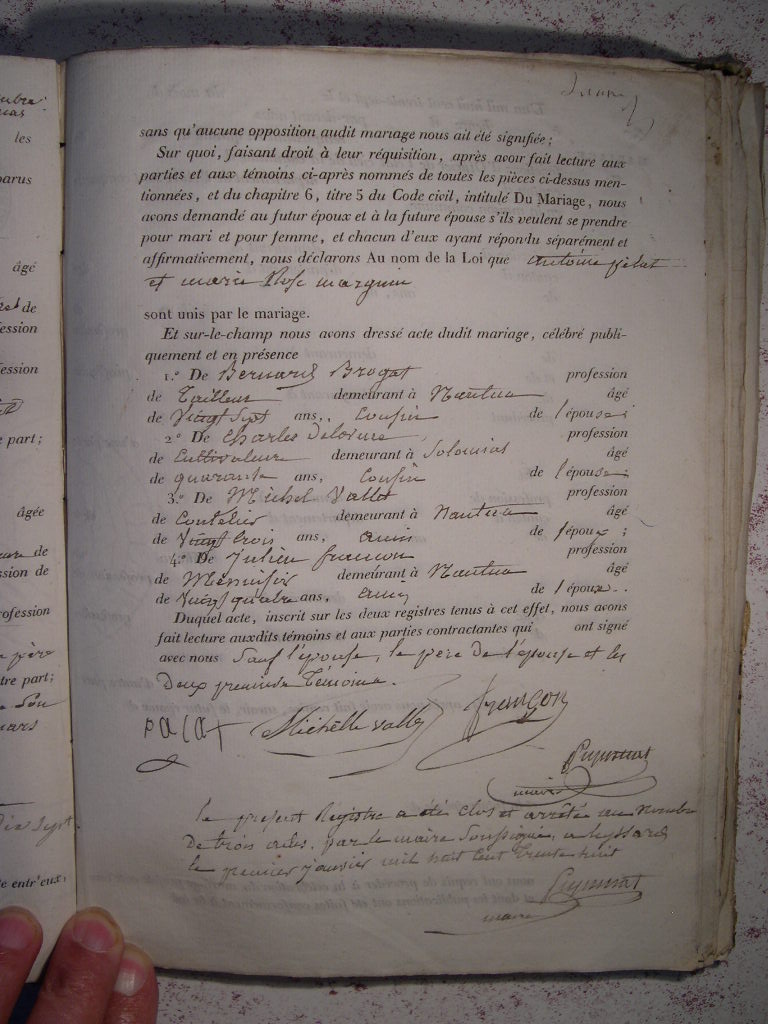 sans qu'aucune opposition audit mariage nous ait été signifiée;
Sur quoi, faisant droit à leur réquisition, après avoir fait lecture aux
parties et aux témoins ci-après nommés de toutes les pièces ci-dessus men-
tionnées, et du chapitre 6, titre 5 du Code civil, intitulé Du Mariage, nous
avons demandé au futur époux et à la future épouse s'ils veulent se prendre
pour mari et pour femme, et chacun d'eux ayant répondu séparément et
affirmativement, nous déclarons Au nom de la Loi que antoine
et marie Rose
sont unis par le mariage.
Et sur-le-champ nous avons dressé acte dudit mariage, célébré publi-
quement et en présence
1.º De Bernard Brogat profession
de Tailleur demeurant à Nantua âgé
de Vingt Sept ans, Cousin de l'épouse;
2.º De Charles profession
de Cultivateur demeurant à Solomiat âgé
de quarante ans, Cousin de l'épouse;
3.º De Michel Vallet profession
de Coutelier demeurant à Nantua âgé
de Vingt trois ans, amis de l'époux;
4.º De Julien françon profession
de Menuisier demeurant à Nantua âgé
de Vingt quatre ans, amis de l'époux.
Duquel acte, inscrit sur les deux registres tenus à cet effet, nous avons
fait lecture auxdits témoins et aux parties contractantes qui ont signé
avec nous Sauf l'épouse, le père de l'épouse et les
Deux premiers Témoins.
françon
maire
le présent Registre a été clos et arrêté au Nombre
De trois actes, par le maire Soussigné, a Leyssard
le premier janvier mil huit Cent Trente huit
maire
les
âgé
de
part;
âgée
de
sion de
tre part;
e entr'eux,